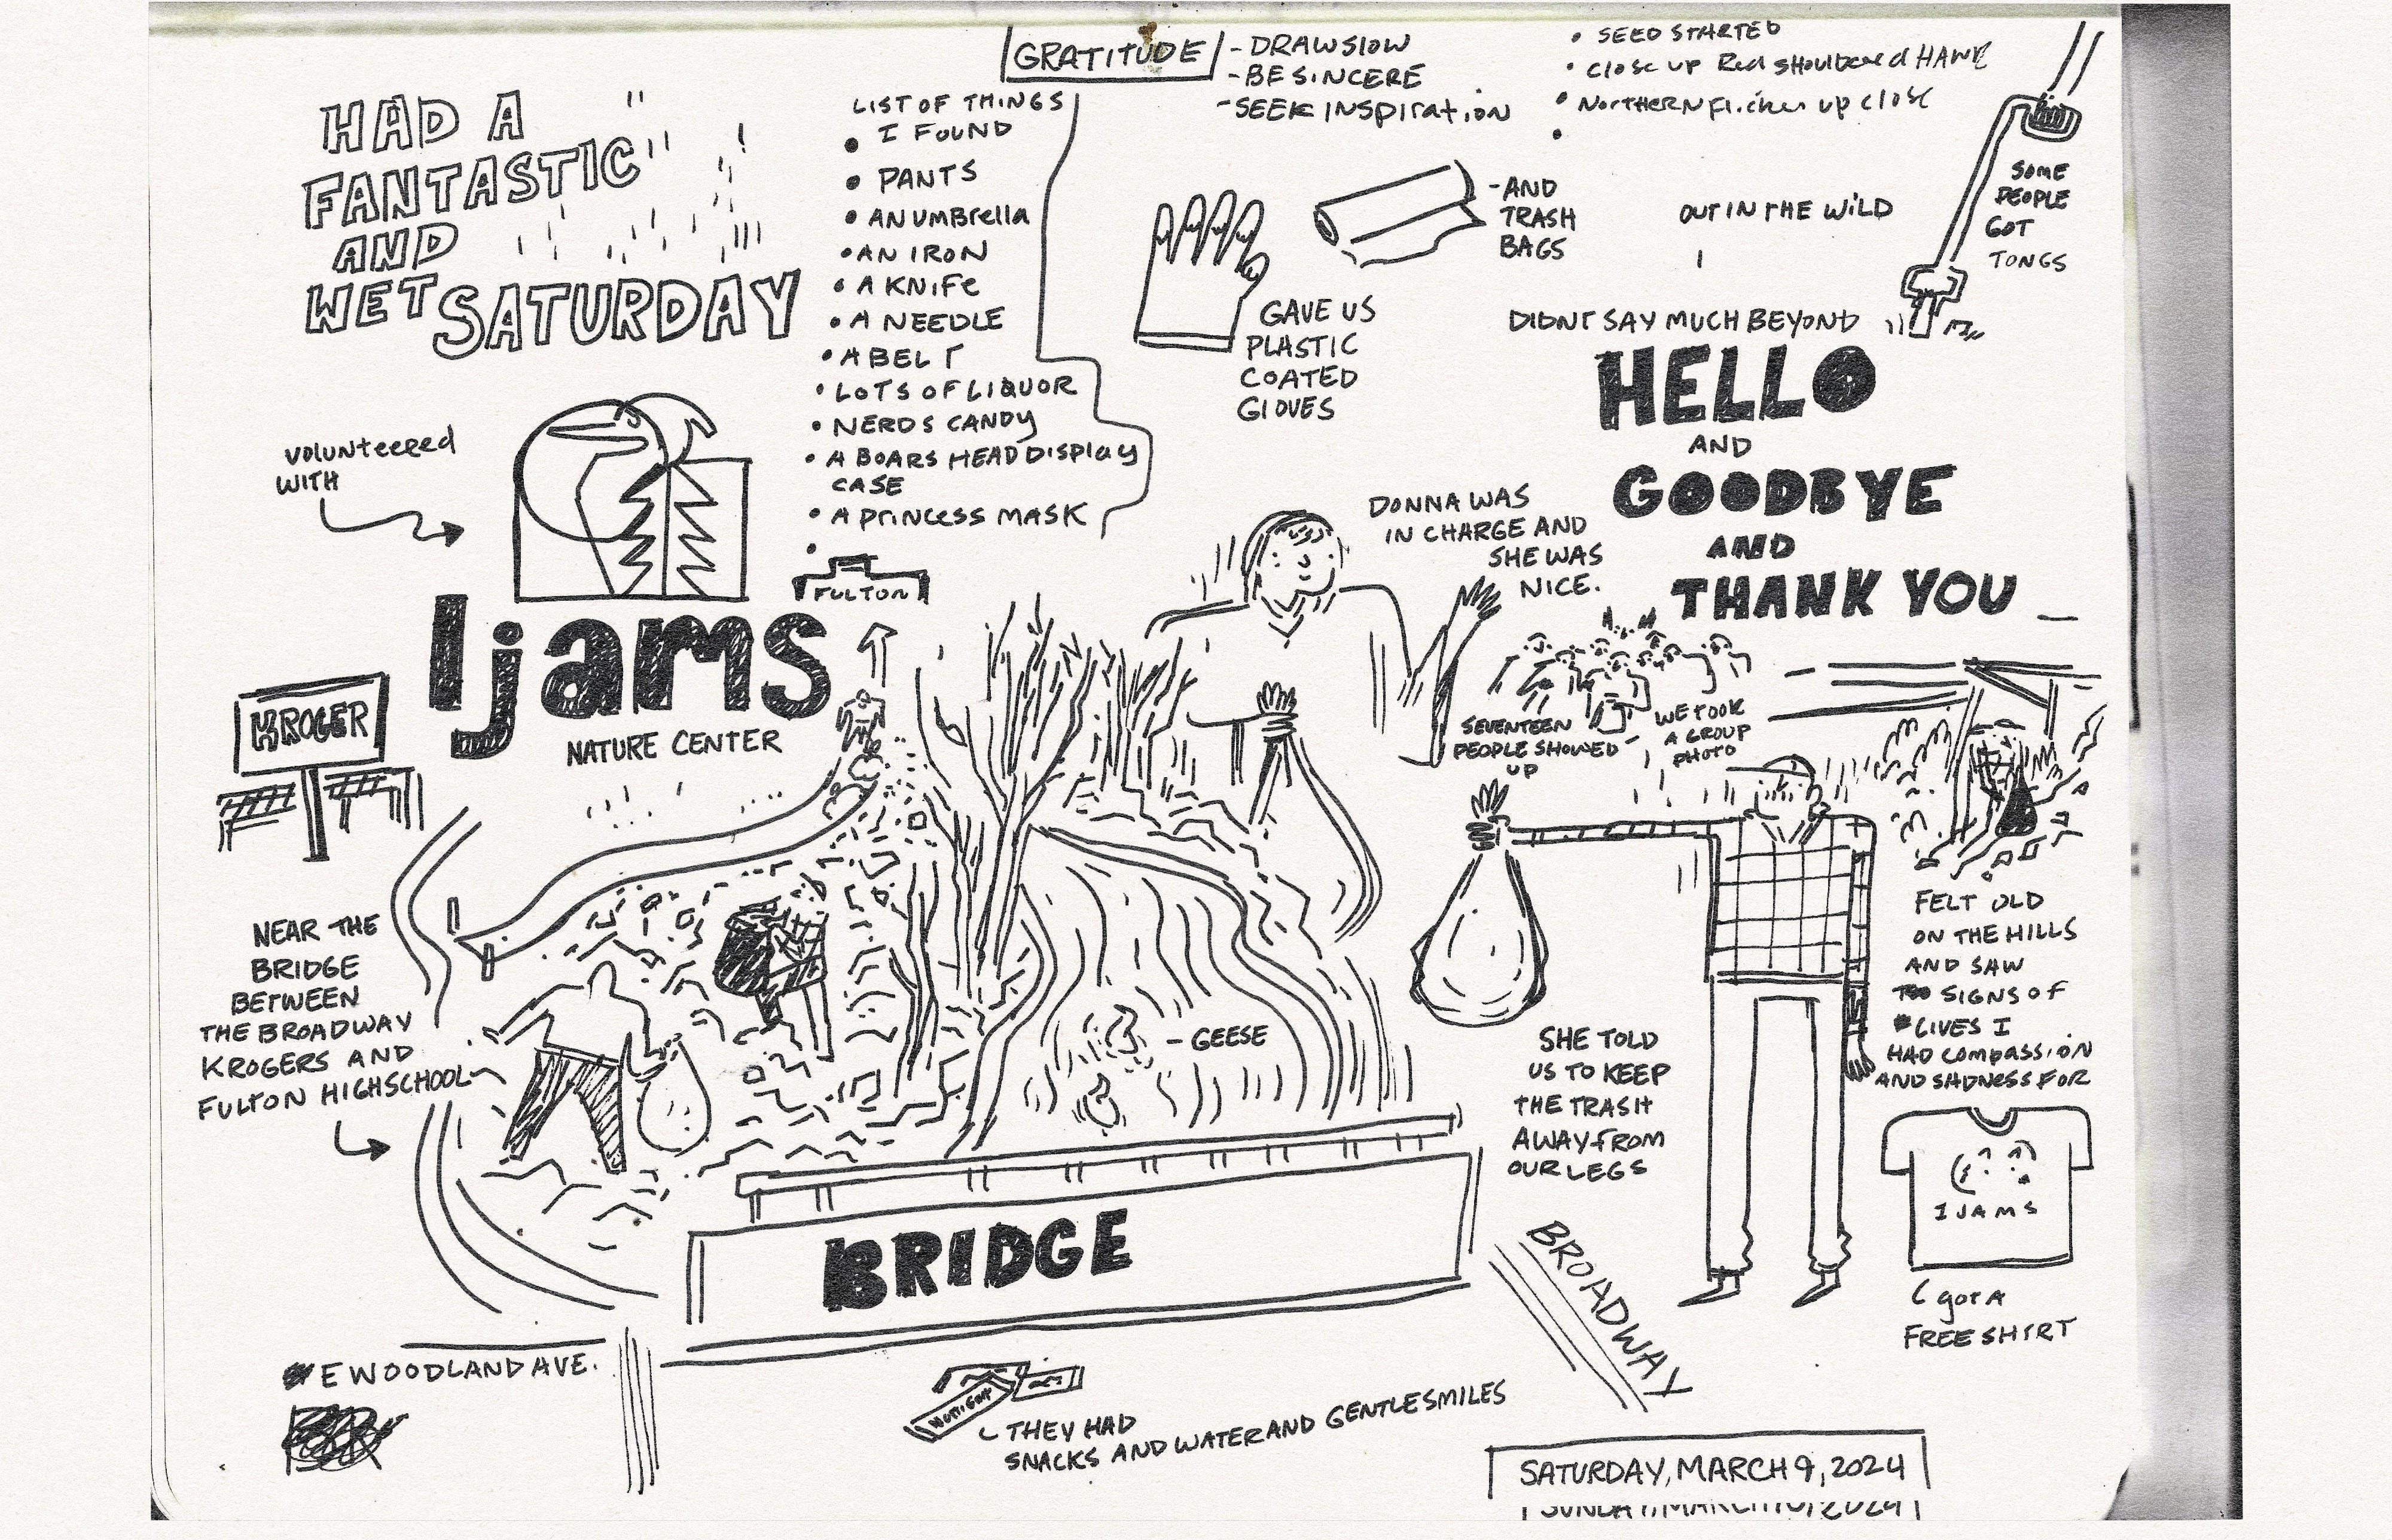 GRATITUDE
- DRAW SLOW
- BE SINCERE
- SEEK INSPIRATION
• SEED STARTED
• Close up Red shouldered HAWK
• NORTHERN Flicker up close
•
HAD A
FANTASTIC
AND
WET SATURDAY
LIST OF THINGS
• I FOUND
• PANTS
• AN UMBRELLA
• AN IRON
• A KNIFE
• A NEEDLE
• A BELT
• LOTS OF LIQUOR
• NERDS CANDY
• A BOARS HEAD DISPLAY
CASE
• A PRINCESS MASK
•
- AND
TRASH
BAGS
GAVE US
PLASTIC
COATED
GLOVES
OUT IN THE WILD
SOME
PEOPLE
GOT
TONGS
DIDNT SAY MUCH BEYOND
HELLO
AND
GOODBYE
AND
THANK YOU
VOLUNTEERED
WITH
Ijams
NATURE CENTER
FULTON
DONNA WAS
IN CHARGE AND
SHE WAS
NICE.
SEVENTEEN
PEOPLE SHOWED
UP
WE TOOK
A GROUP
PHOTO
KROGER
NEAR THE
BRIDGE
BETWEEN
THE BROADWAY
KROGERS AND
FULTON HIGHSCHOOL
- GEESE
SHE TOLD
US TO KEEP
THE TRASH
AWAY FROM
OUR LEGS
FELT OLD
ON THE HILLS
AND SAW
SIGNS OF
LIVES I
HAD COMPASSION
AND SADNESS FOR
IJAMS
GOT A
FREE SHIRT
BRIDGE
BROADWAY
E WOODLAND AVE.
THEY HAD
SNACKS AND WATER AND GENTLE SMILES
SATURDAY, MARCH 9, 2024
SUNDAY, MARCH 10, 2024